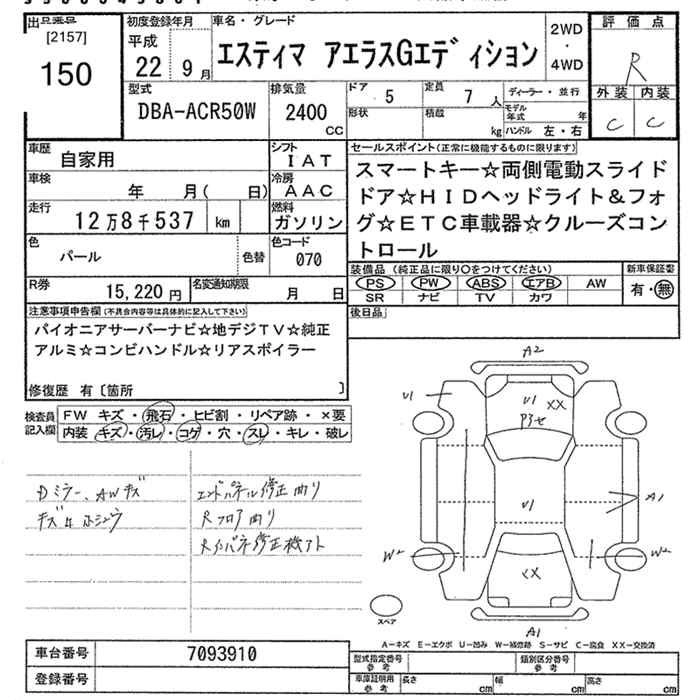 [2157]
150
初度登録年月
平成
22 9 月
車名・グレード
エスティマ アエラスGエディション
2WD
・
4WD
評価点
R
外装 内装
C C
型式
DBA-ACR50W
排気量
2400
CC
ドア 5
定員 7 人
ディーラー・並行
形状
積載 kg
モデル年式 年
ハンドル 左・右
車歴
自家用
シフト
IAT
車検
年 月( 日)
冷房
AAC
走行
12万8千537 km
燃料
ガソリン
色
パール
色替
色コード
070
R券
15,220 円
名変通知期限
月 日
セールスポイント(正常に機能するものに限ります)
スマートキー☆両側電動スライド
ドア☆HIDヘッドライト&フォ
グ☆ETC車載器☆クルーズコン
トロール
装備品 (純正品に限り○をつけてください)
PS PW ABS エアB AW
SR ナビ TV カワ
新車保証書
有・無
後日品
注意事項申告欄(不具合内容等は具体的に記入して下さい)
パイオニアサーバーナビ☆地デジTV☆純正
アルミ☆コンビハンドル☆リアスポイラー
修復歴 有〔箇所 〕
検査員
記入欄
FW キズ・飛石・ヒビ割・リペア跡・×要
内装 キズ・汚レ・コゲ・穴・スレ・キレ・破レ
Dミラー、AWキズ
エンドパネル修正曲り
Rフロア曲り
A2
U1
U1 XX
U1
A1
W2
W2
XX
A1
スペア
A-キズ E-エクボ U-凹み W-補修跡 S-サビ C-腐食 XX-交換済
車台番号
7093910
登録番号
型式指定番号
参考
類別区分番号
参考
車庫証明用
参考
長さ cm
幅 cm
高さ cm